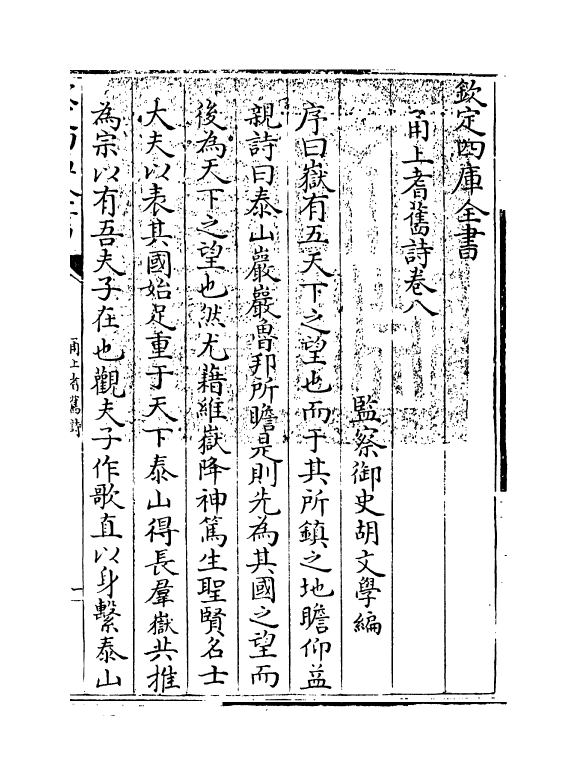 欽定四庫全書
甬上耆舊詩卷八
監察御史胡文學編
序曰嶽有五天下之望也而于其所鎮之地瞻仰益
親詩曰泰山巖巖魯邦所瞻是則先為其國之望而
後為天下之望也然尤藉維嶽降神篤生聖賢名士
大夫以表其國始足重于天下泰山得長羣嶽共推
為宗以有吾夫子在也觀夫子作歌直以身繫泰山
甬上耆舊詩
一